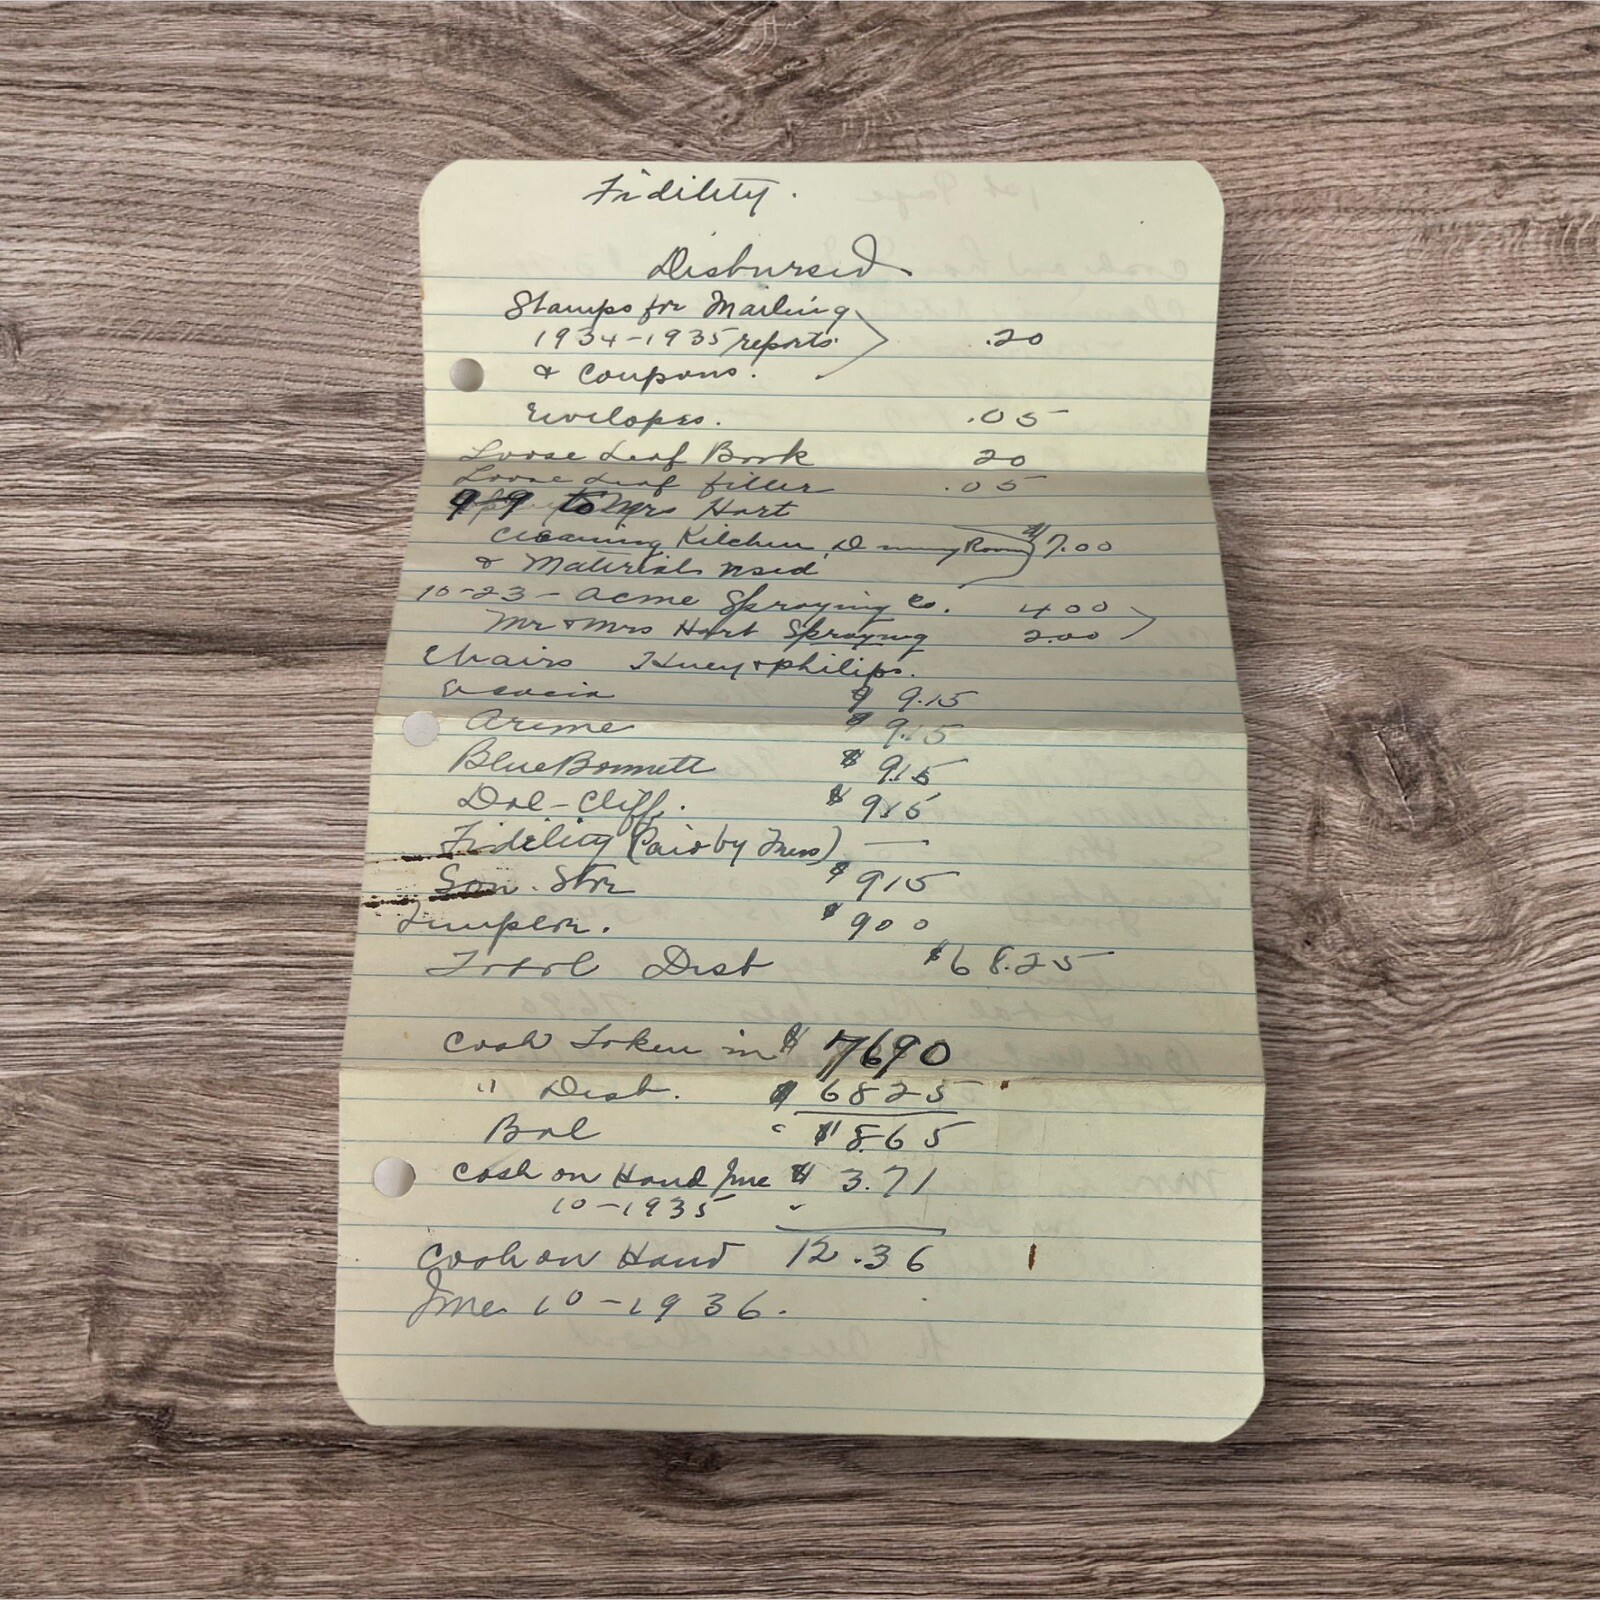 Fidility.
Disbursed
Stamps for Mailing
1934-1935 reports .20
& Coupons.
Envelopes. .05
Loose Leaf Book 20
Loose Leaf filler .05
9-9 to Mrs Hart
Cleaning Kitchen, Dinning Room $7.00
& Materials used
10-23- Acme Spraying Co. 400
Mr & Mrs Hart Spraying 2.00
Chairs Huey & philips.
Acacia $ 9.15
Arime $ 9.15
Blue Bonnett $ 9.15
Dal-Cliff. $ 915
Fidelity (Paid by Them) —
San. Star $ 915
Templar. $ 900
Total Disb $68.25
Cash Token in $ 7690
" Disb. $ 6825
Bal $ 8.65
Cash on Hand June $ 3.71
10-1935
Cash on Hand 12.36
June 10-1936.